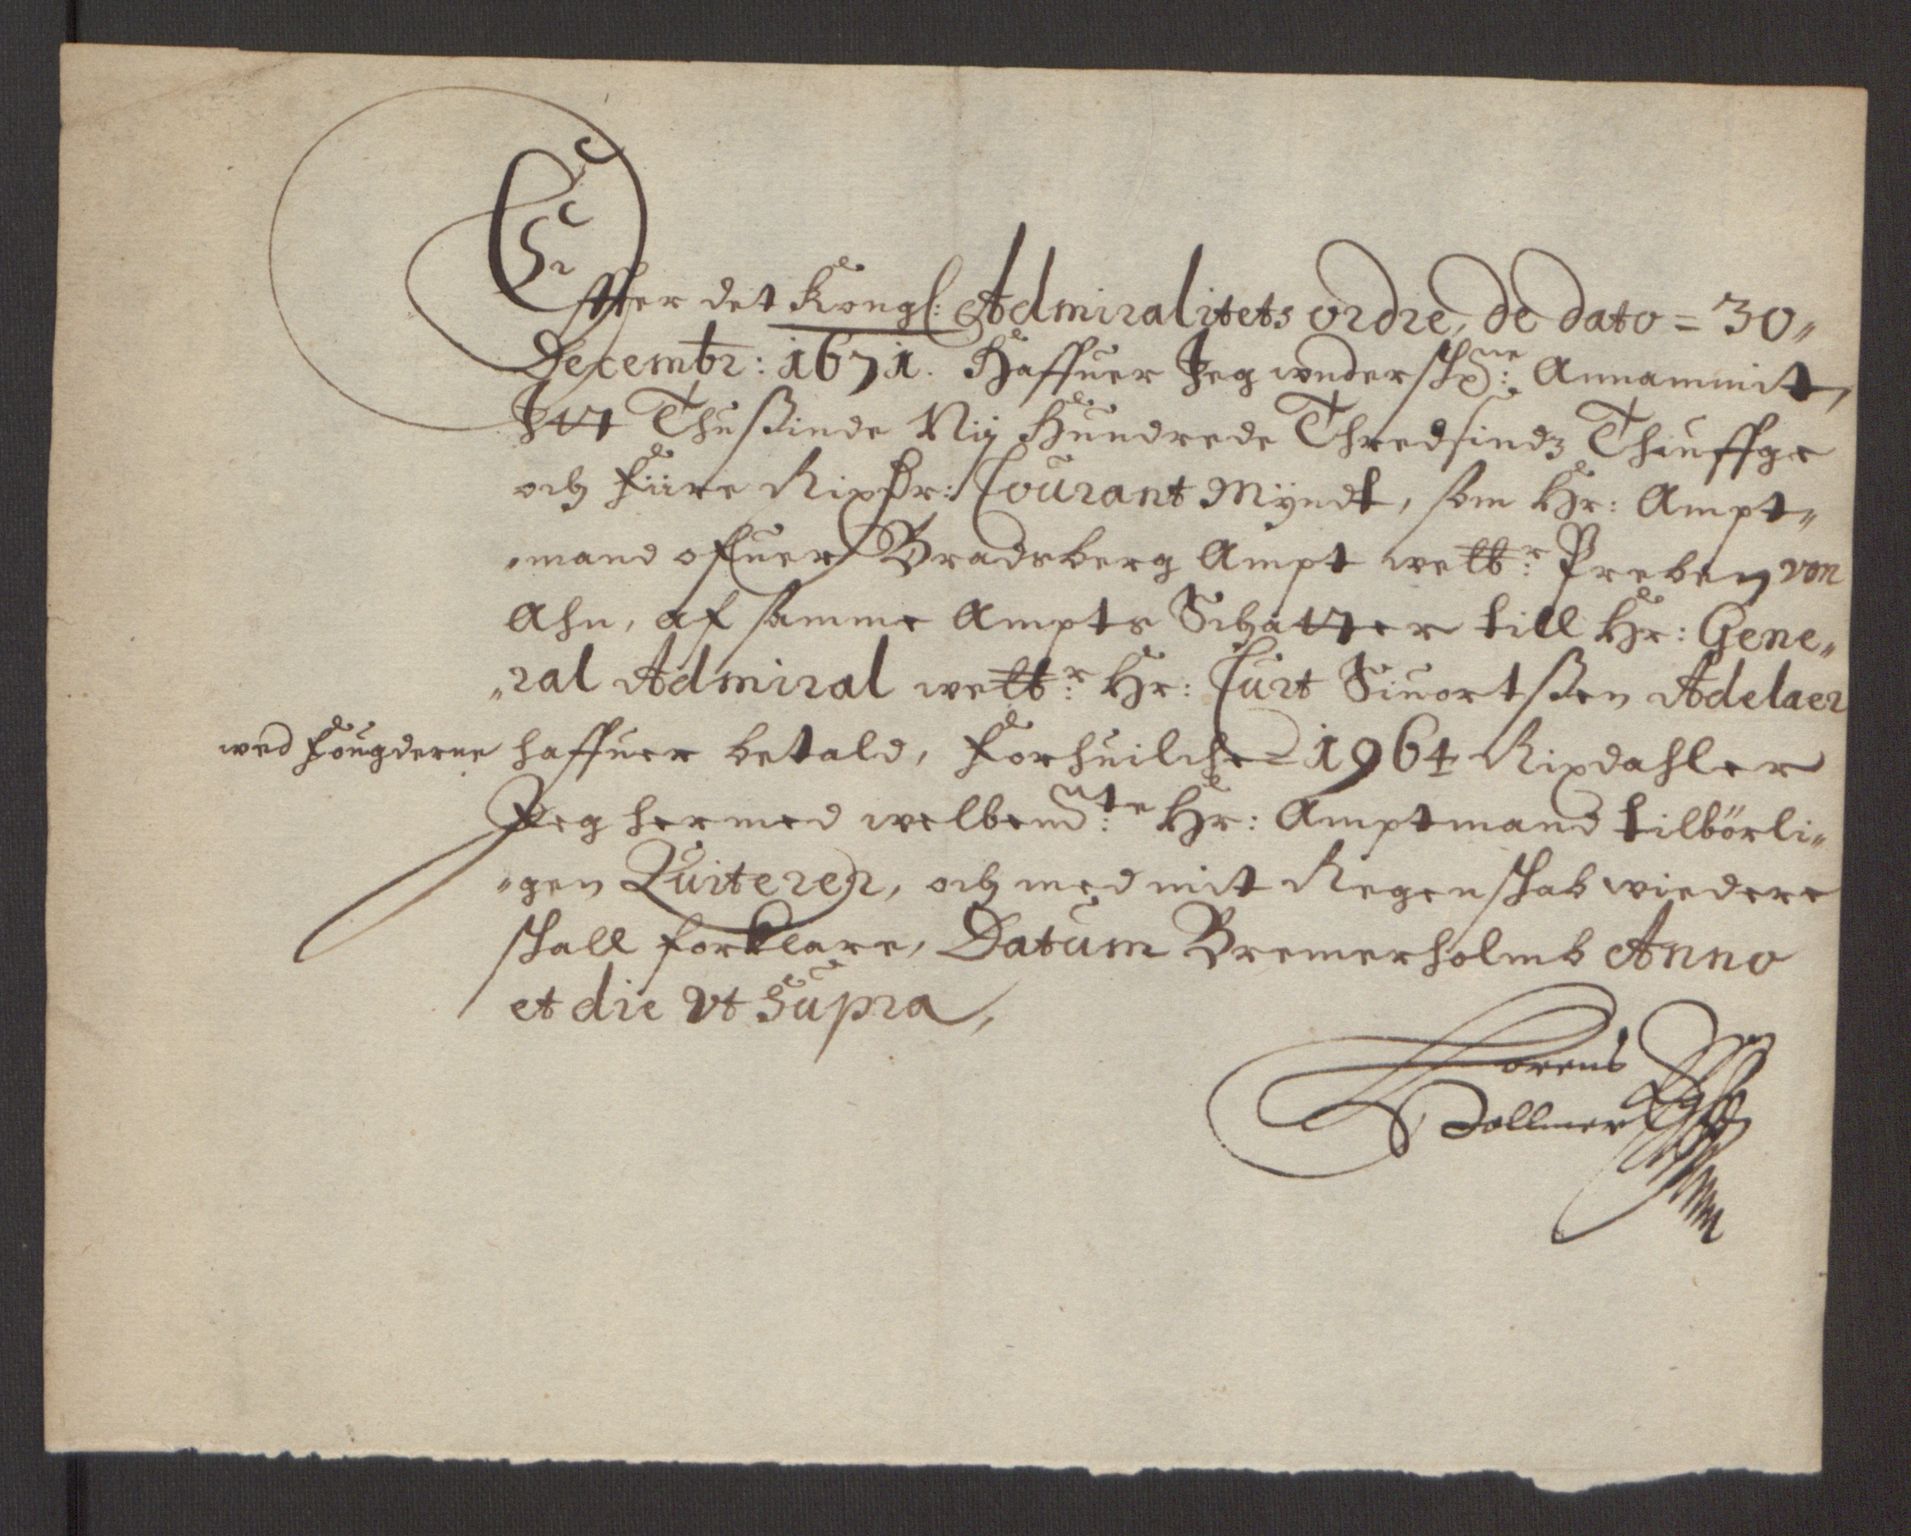 Effter det Kongl: Admiralitets ordre, de dato = 30„
Decembr: 1671. Haffuer Jeg underskr:ne Annammit,
Itt Thußinde Nij Hundrede Thredsindz Thiuffge
och Fiire Rixdr: Courant Myndt, som Hr: Ampt„
„mand offuer Bradsberg Ampt welb:r Preben von
Ahn, af samme Ampts Schatter till Hr: Gene„
„ral Admiral welb:r Hr: Curt Siuortßen Adelaer
wed Fougderne haffuer betald, Forhuilche 1964 Rixdahler
Jeg hermed welbemd:te Hr: Amptmand tilbörli„
„gen Quiterer, och med mit Regenskab wiedere
skall forklare, Datum Bremerholmb Anno
et die Vt Supra,
Lorens
Vollmer